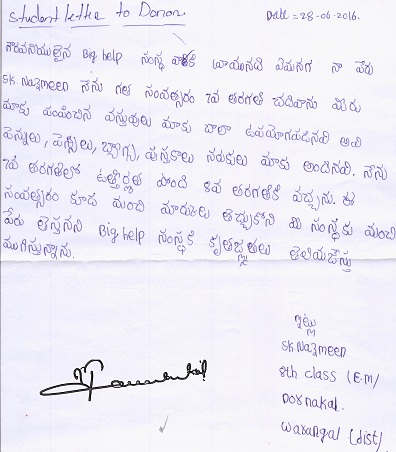 student letter to Donor.
Date = 28-06-2016.
గౌరవనీయులైన Big help సంస్థ వారికి వ్రాయునది ఏమనగ నా పేరు
SK.Nazmeen నేను గత సంవత్సరం 7వ తరగతి చదివాను మీరు
మాకు పంపించిన వస్తువులు మాకు చాలా ఉపయోగపడినవి అవి
పెన్నులు, పెన్సిలు, బ్యాగ్స్, పుస్తకాలు సరుకులు మాకు అందినవి. నేను
7వ తరగతిలో ఉత్తీర్ణత పొంది 8వ తరగతికి వచ్చాను. ఈ
సంవత్సరం కూడ మంచి మార్కులు తెచ్చుకొని మీ సంస్థకు మంచి
పేరు తెస్తానని Big help సంస్థకి కృతజ్ఞతలు తెలియజేస్తు
ముగిస్తున్నాను.
ఇట్లు
SK Nazmeen
8th class (E.M)
Dornakal.
Warangal (dist)